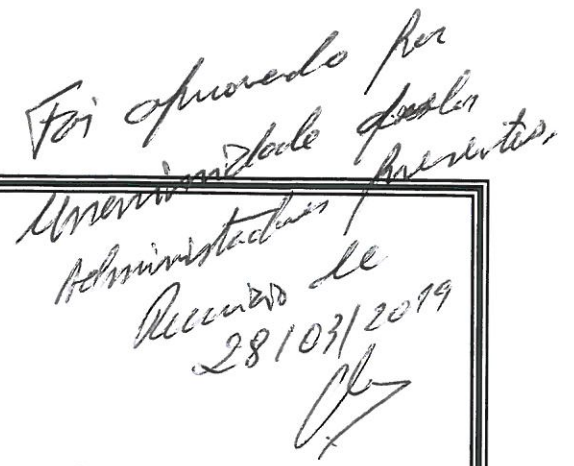 Foi aprovado por
Unanimidade pelos
Administradores presentes.
Reunião de
28/03/2019